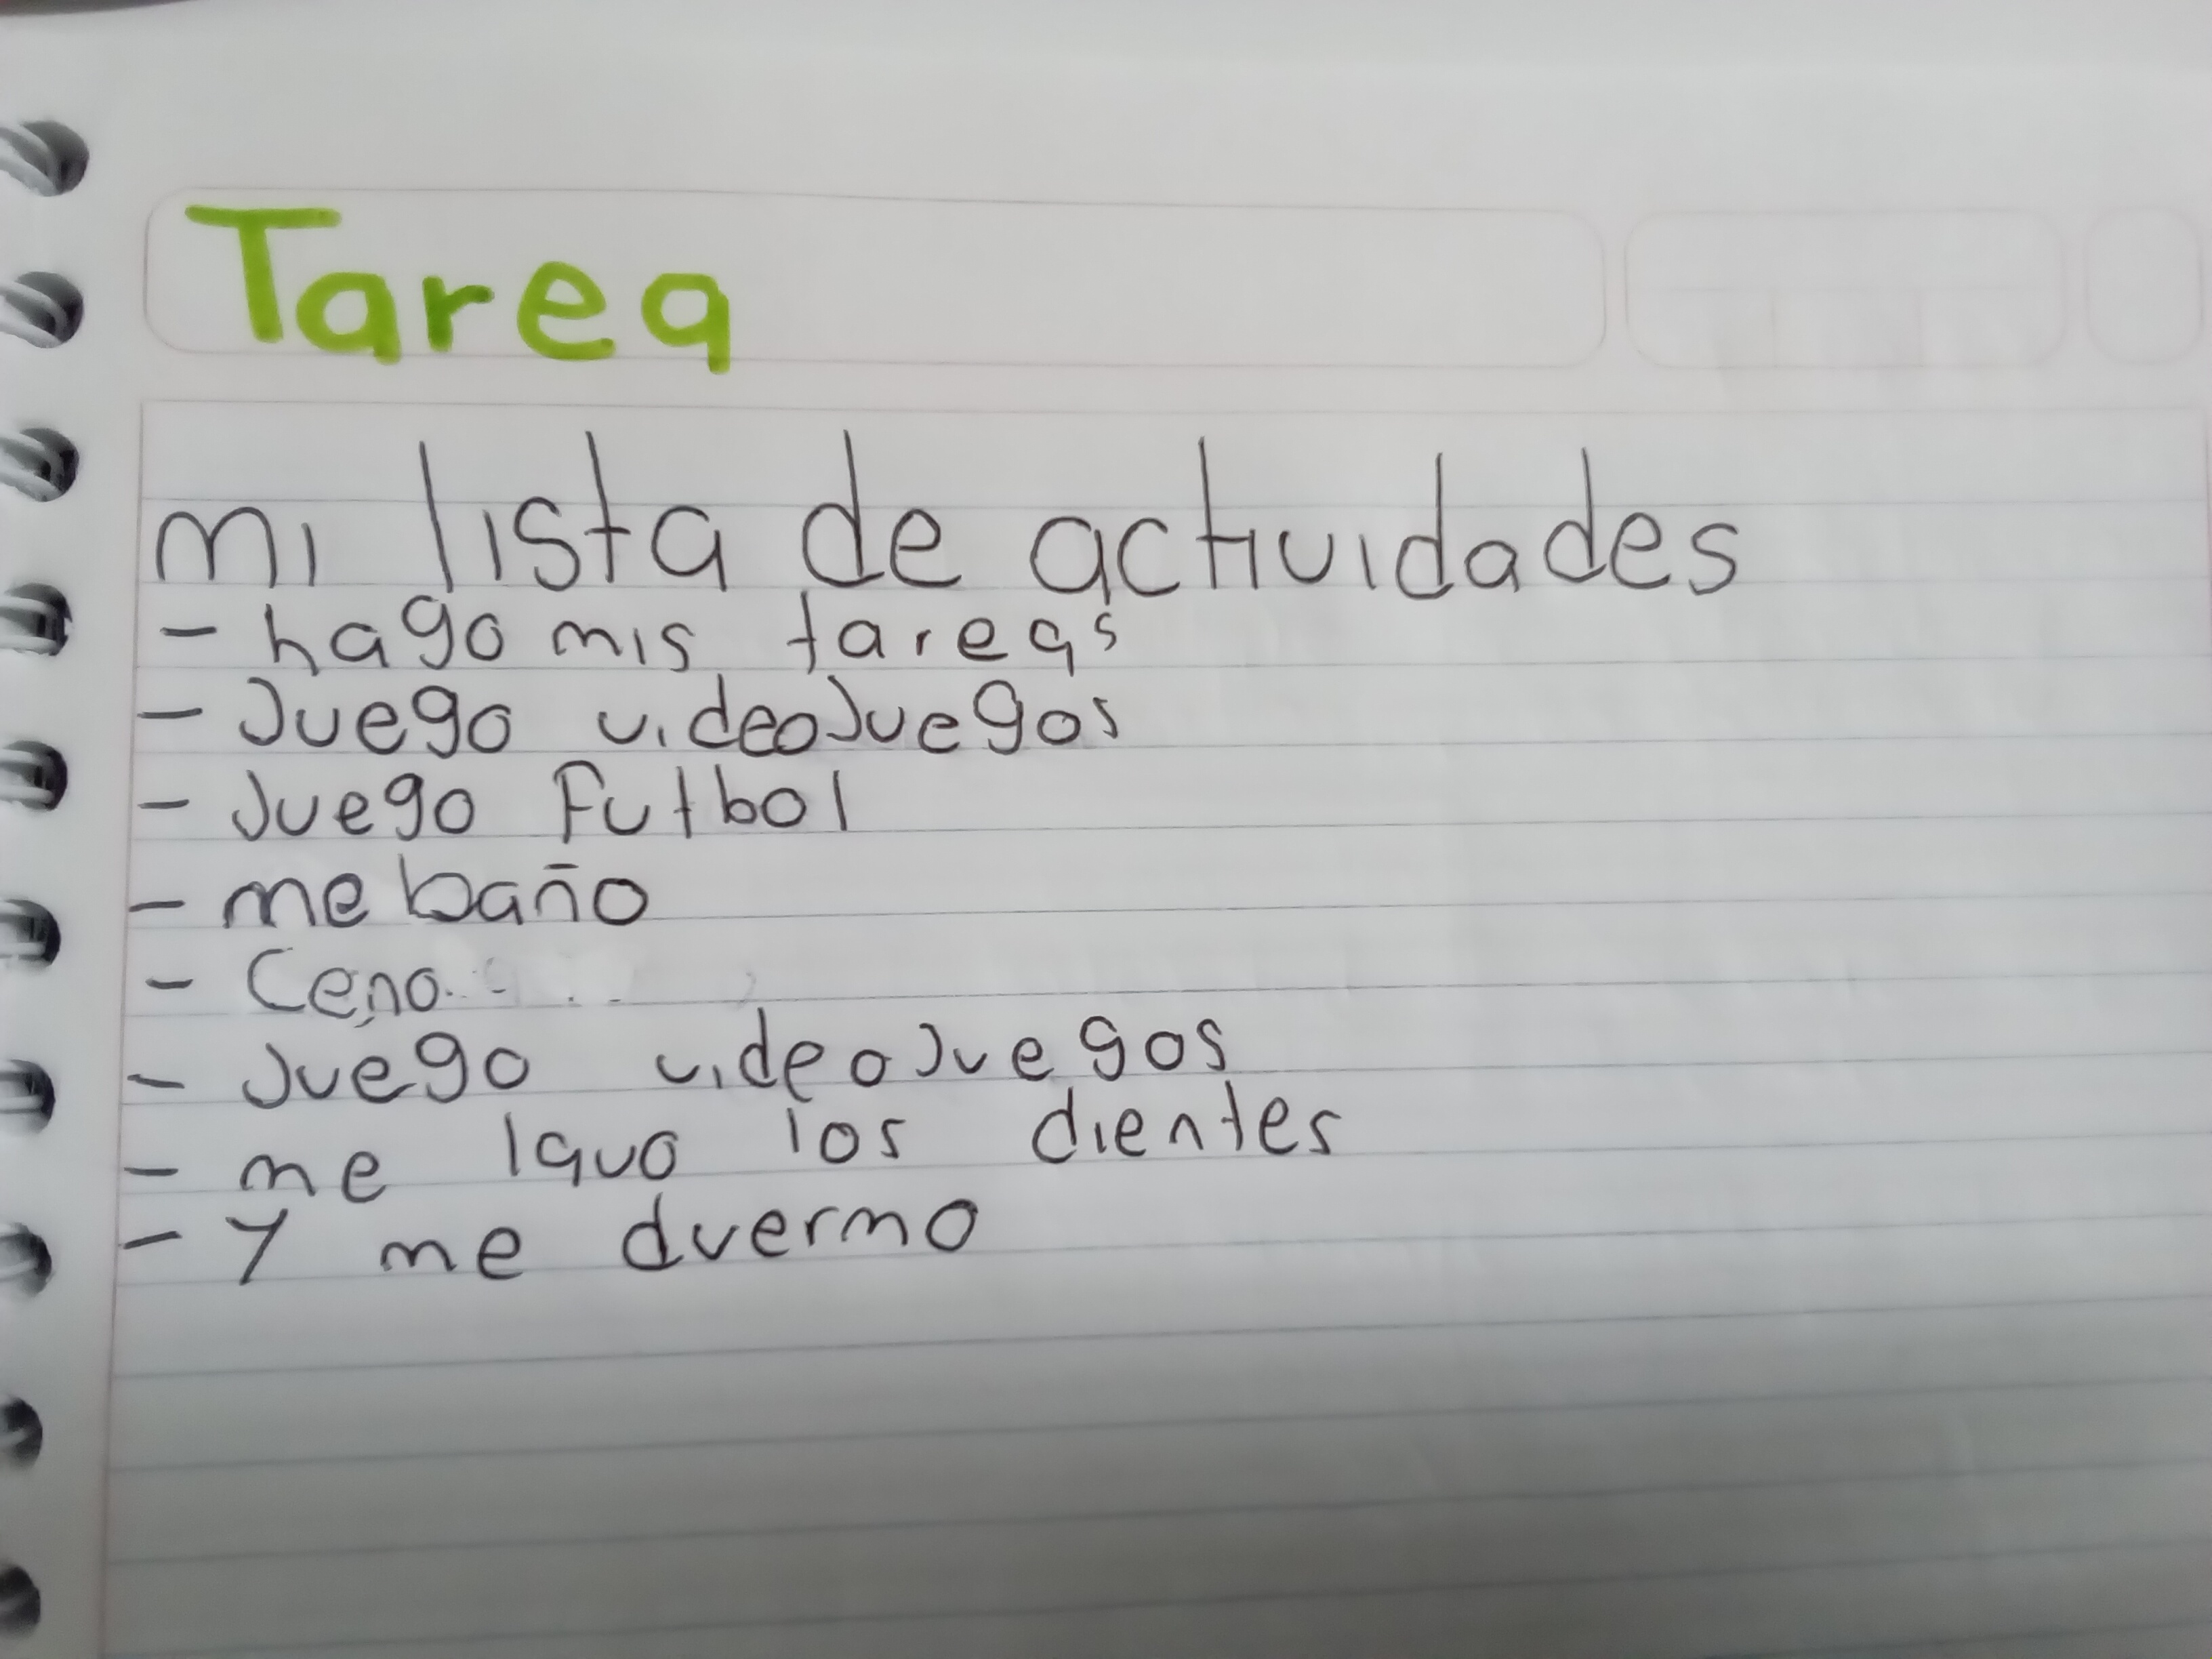 Tarea
mi lista de actividades
- hago mis tareas
- Juego videoJuegos
- Juego Futbol
- me baño
- Ceno
- Juego videoJuegos
- me lavo los dientes
- Y me duermo